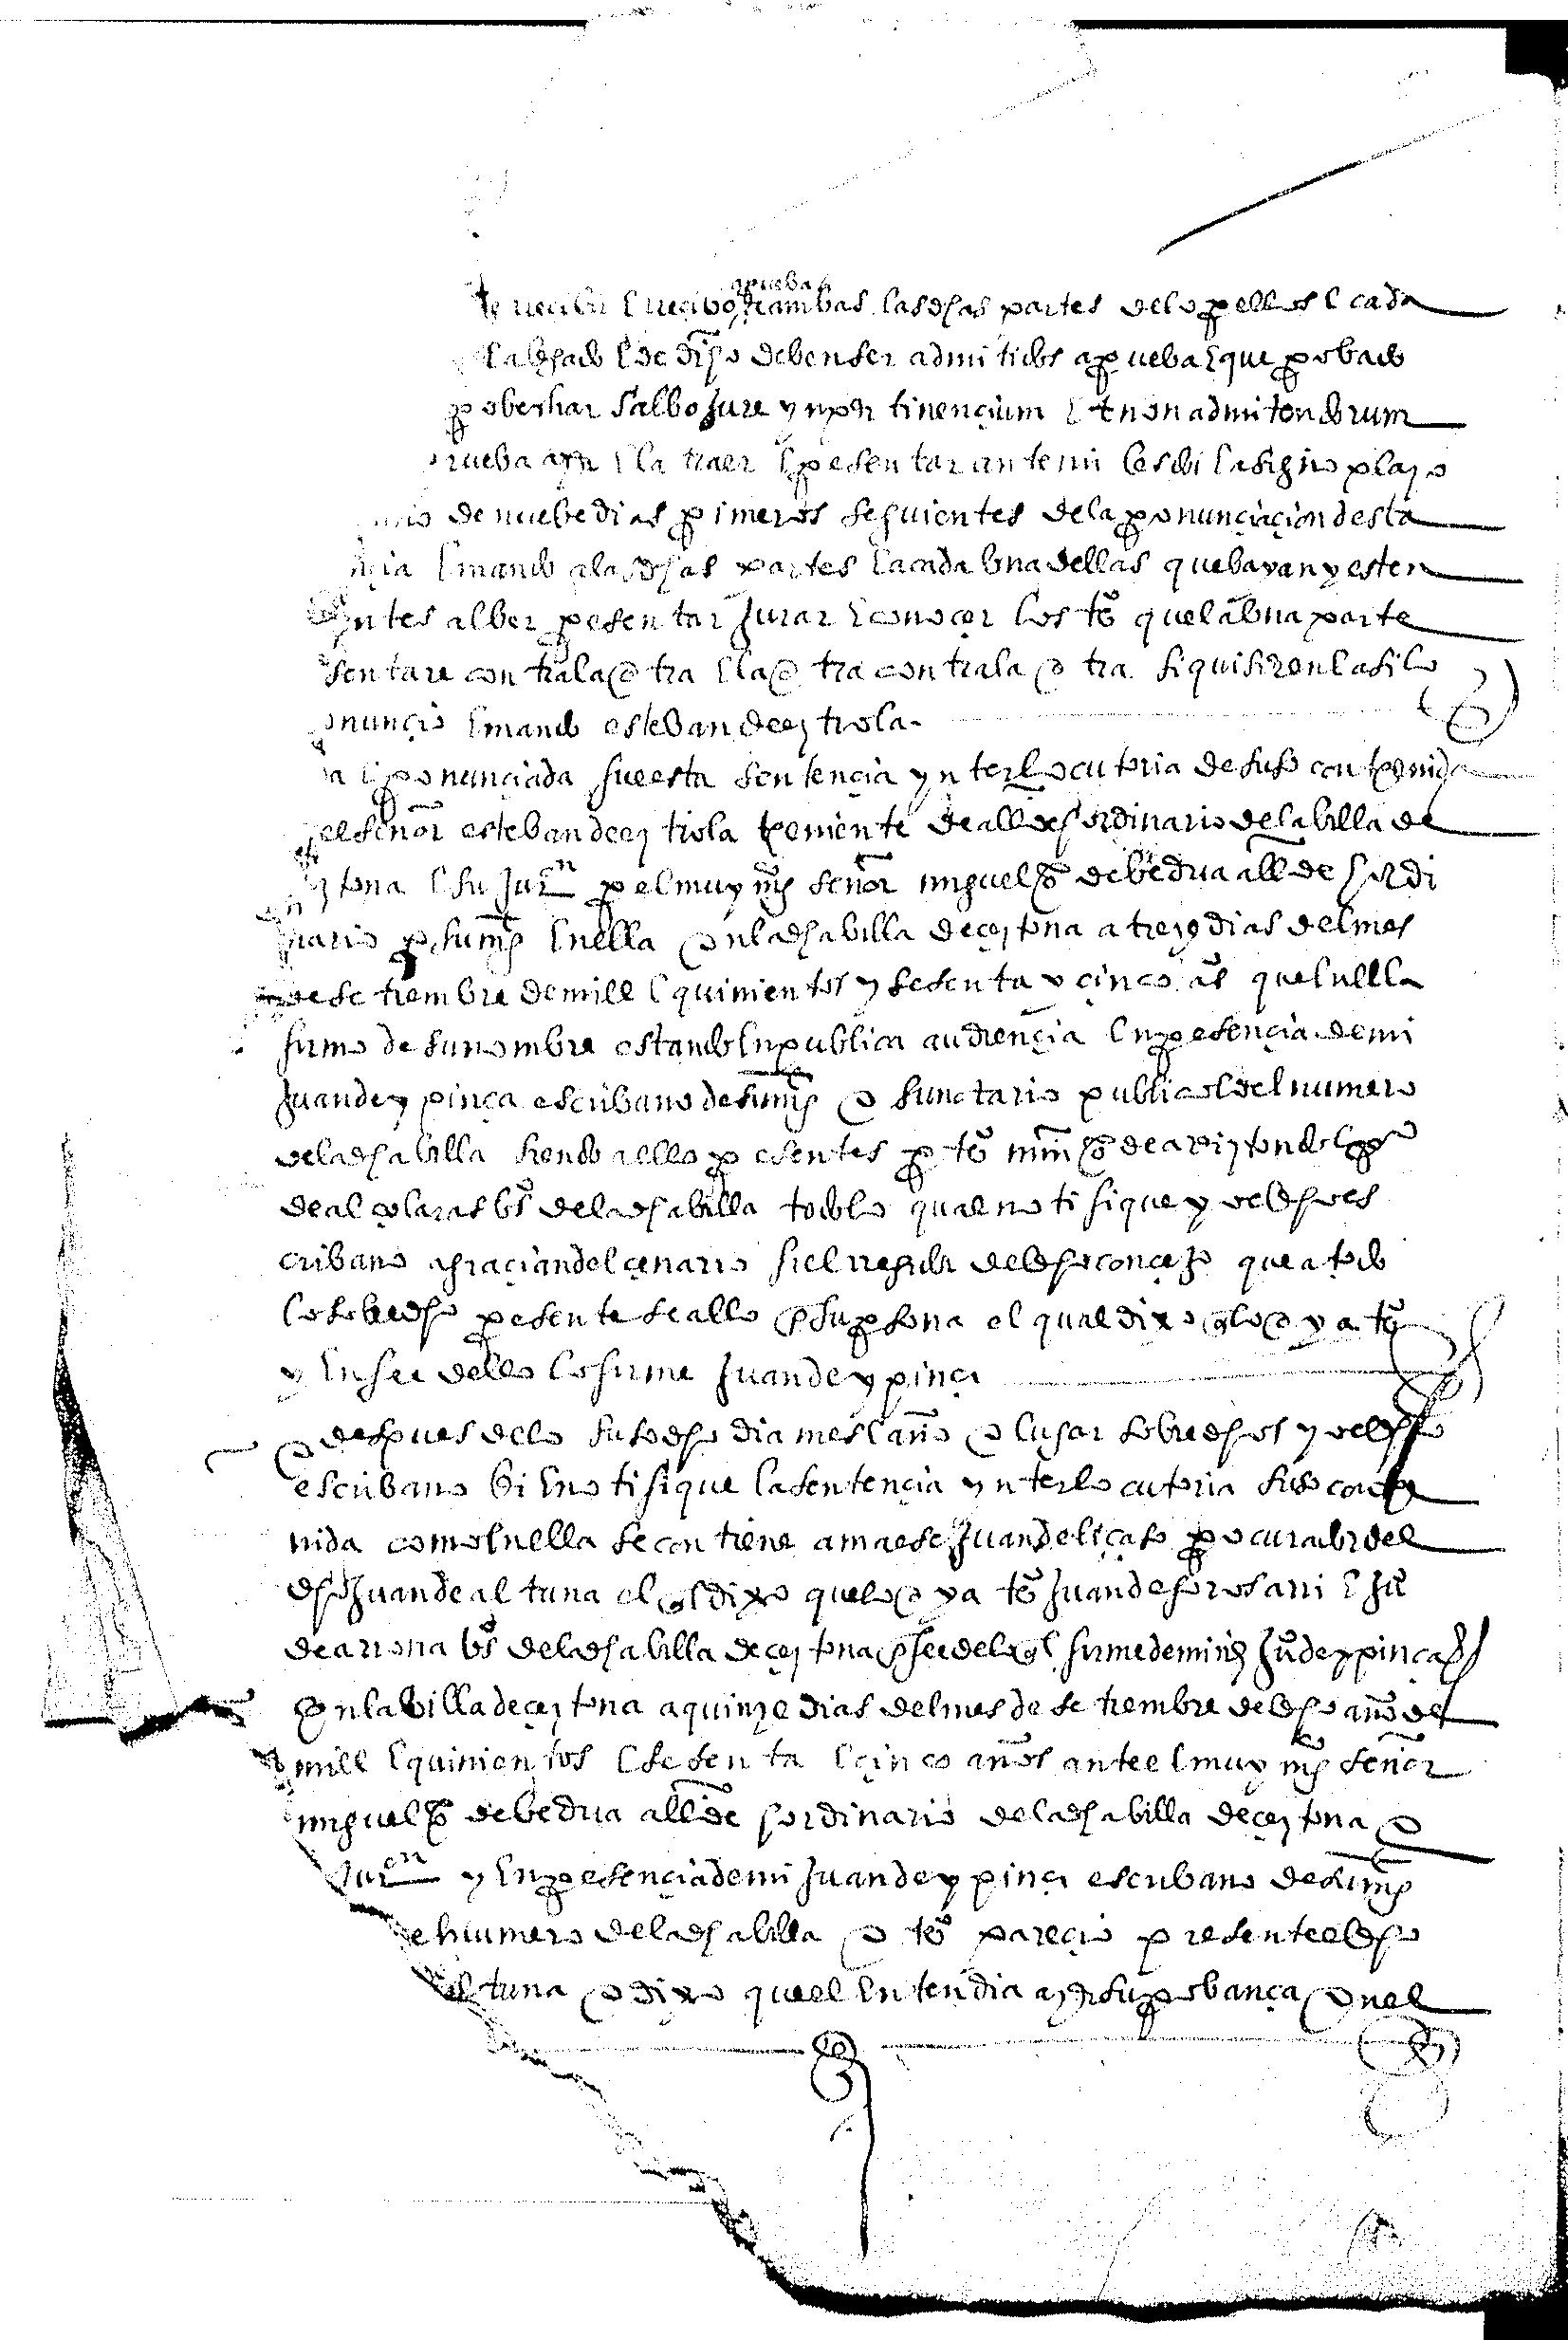 de recibir e recibo a prueba a ambas las dhas partes de lo por ellos e cada
alegado e de dro deben ser admitidos a prueba e que probado
probechar salbo jure ynpertinençium et non admitendorum
prueba azer e la traer e presentar ante mi les doi e asigno plazo
de nuebe dias primeros seguientes de la pronunçiaçion desta
nçia e mando a las dhas partes e a cada una dellas que bayan y esten
entes al ber presentar jurar e conoçer los tos que la una parte
sentare contra la otra e la otra contra la otra si quisieren e asi lo
onunçio e mando esteban de eztiola
da e pronunciada fue esta sentençia ynterlocutoria de suso contenida
el señor esteban de eztiola teniente de allde hordinario de la billa de
ztona e su jurn por el muy mco señor miguel go de bedua allde hordi
nario por su mt en ella en la dha billa de çeztona a treze dias del mes
de setiembre de mill e quinientos y sesenta y çinco as que en ella
firmo de su nombre estando en publica audiençia en presençia de mi
Juan de ypinça escribano de su mt e su notario publico del numero
de la dha billa siendo a ello presentes por tos min go de arreztondo e
de alçolaras bos de la dha billa todo lo qual notifique yo el dho es
cribano a graçian del çenarro fiel regidor del dho conçejo que a todo
lo sobredho presente se allo en su persona el qual dixo q lo oya tos
y en fee dello lo firme Juan de ypinça
e despues de lo susodho dia mes e año e lugar sobredhos yo el dho
escribano lei e notifique la sentençia ynterlocutoria suso conte
nida como en ella se contiene a maese Juan de liçaso procurador del
dho Juan de altuna el qual dixo que lo oya tos Juan de horosarri e Jun
de arrona bos de la dha billa de çeztona en fee de lo qual firme de mi nre Jun de ypinça
En la billa de çeztona a quinze dias del mes de setiembre del dho año de
mill e quinientos e sesenta e çinco años ante el muy mco señor
miguel go de bedua allde hordinario de la dha billa de çeztona e
jurn y en presençia de mi Juan de ypinça escribano de su mt
e numero de la dha billa e tos pareçio presente el dho
altuna e dixo que el entendia azer su probança en el